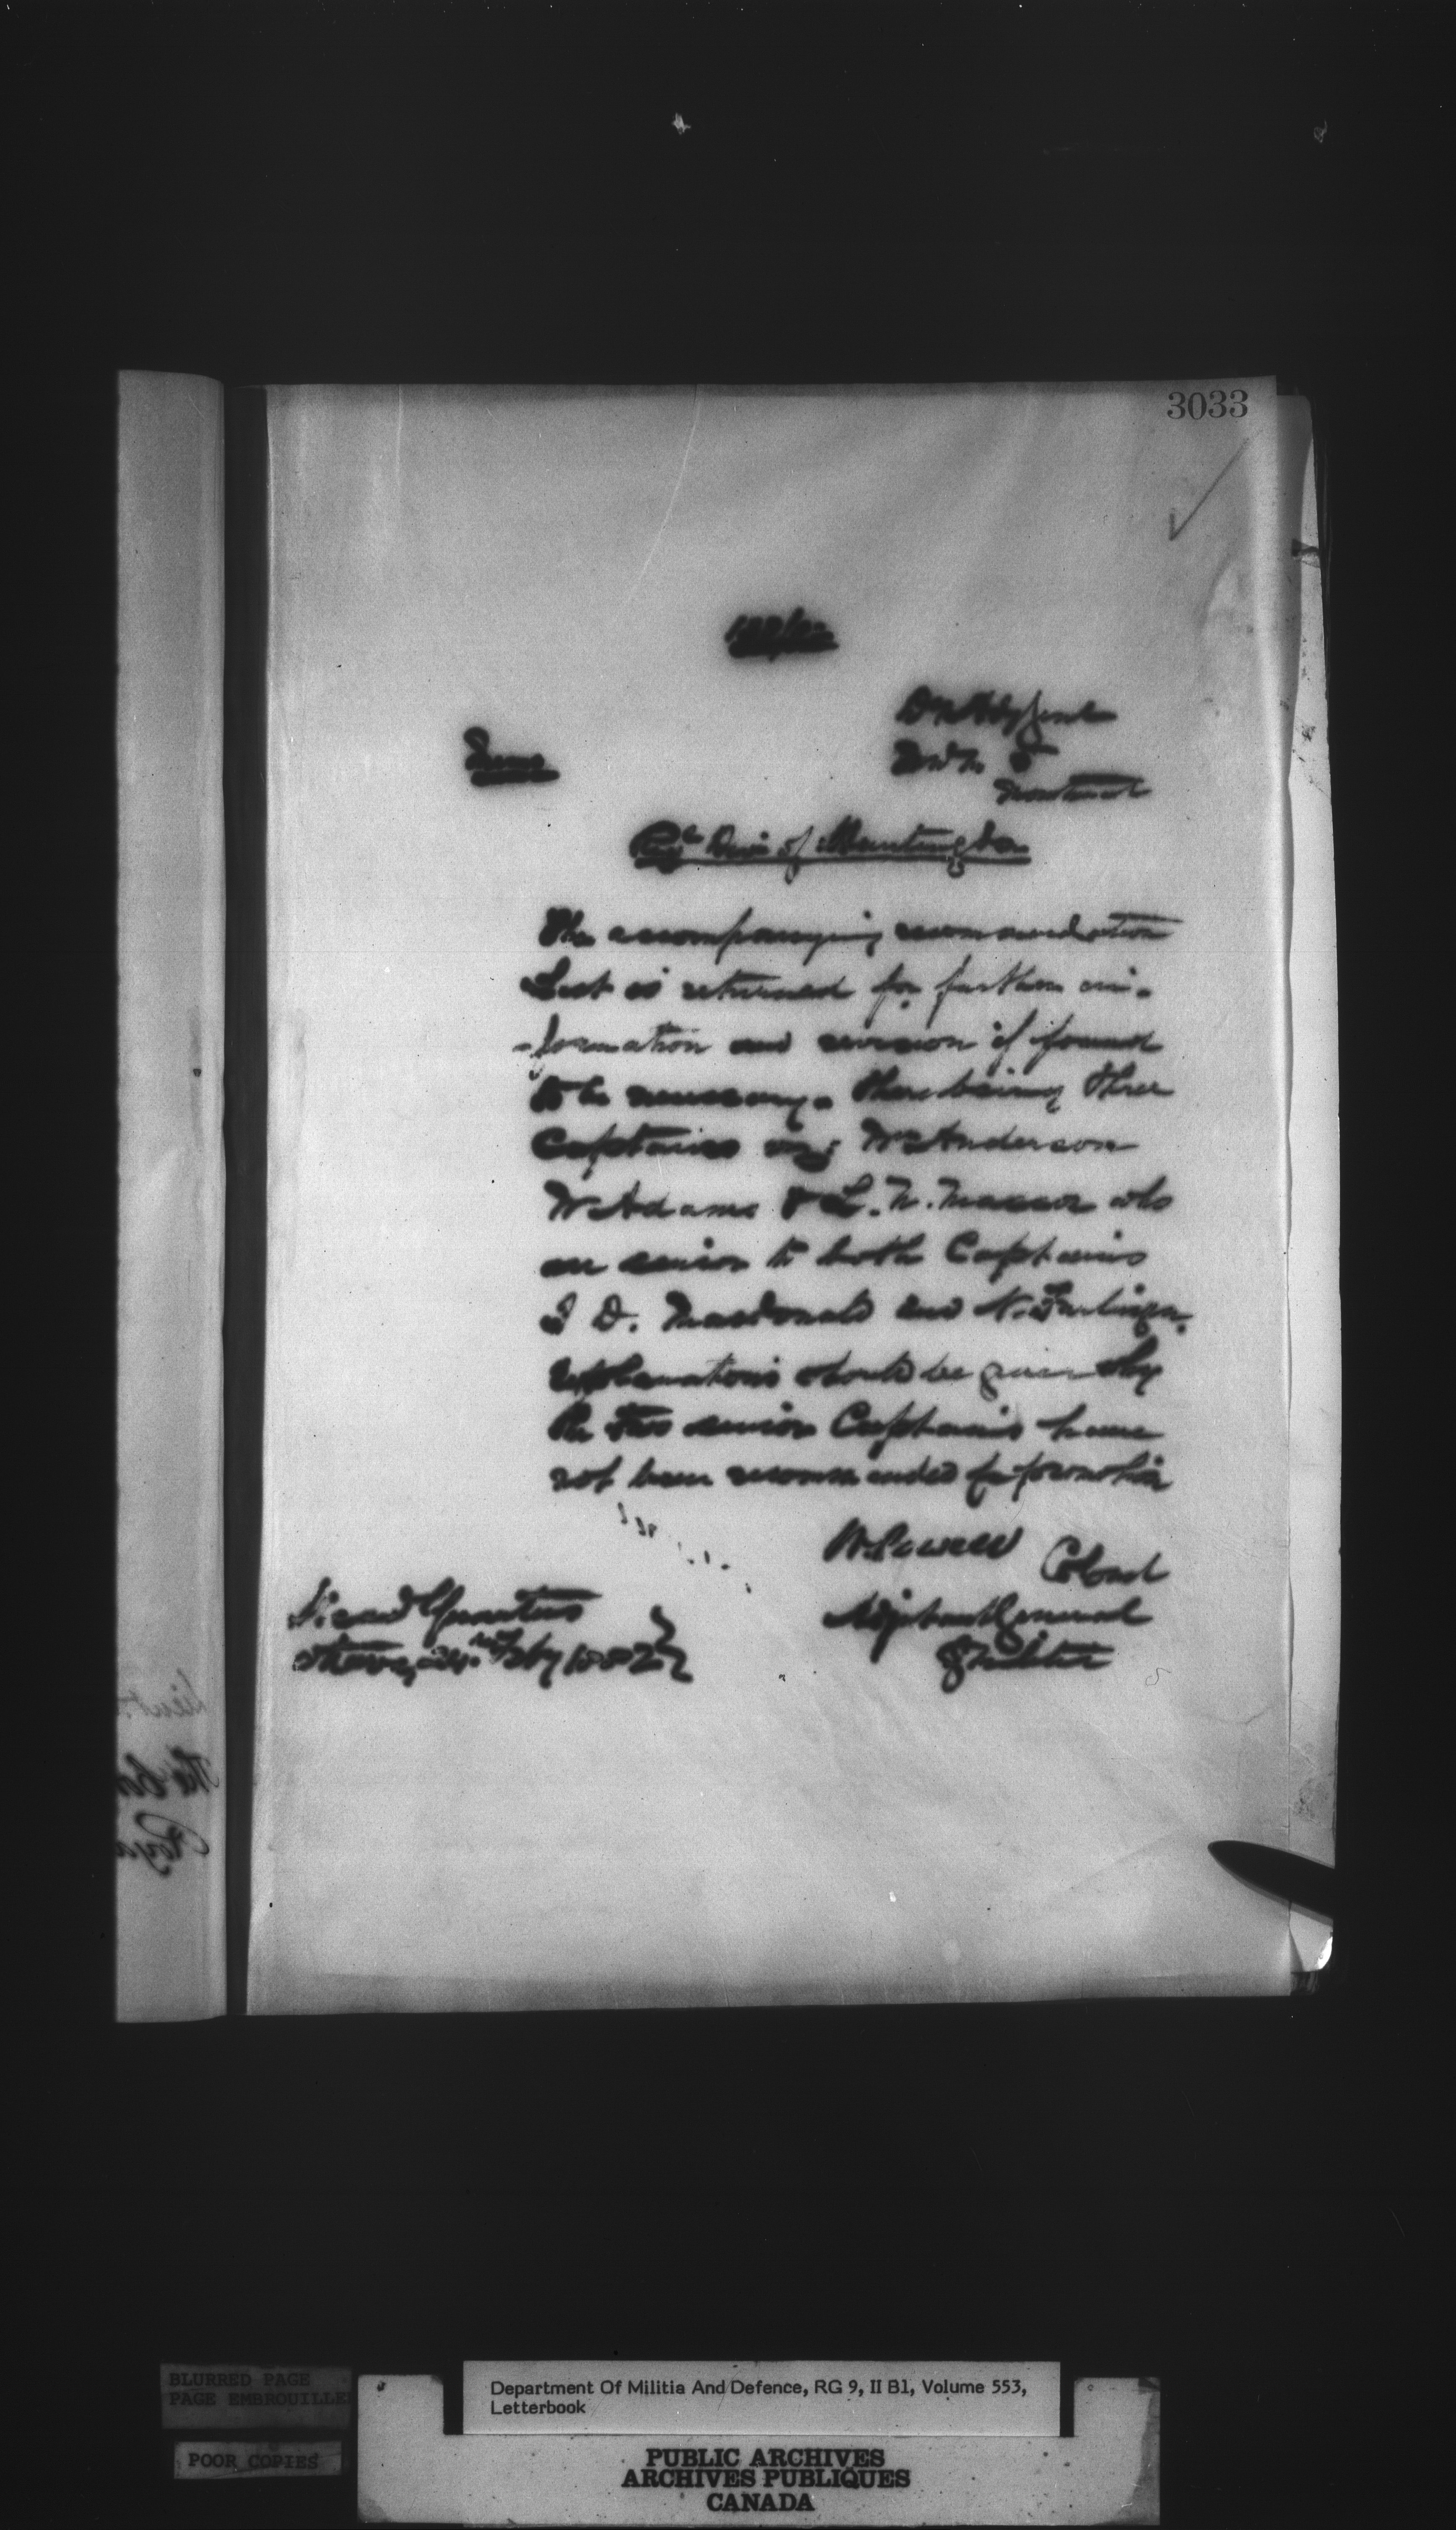 3033
Memo
Dy Adjt Genl
Montreal
Regl Divn of Huntingdon
The accompanying recommendation
List is returned for further in-
-formation and revision if found
to be necessary. There being three
Captains viz: Wm Anderson
Wm Adams & L. N. Masson who
are senior to both Captains
J D. Macdonald and N.
Explanations should be given why
the senior Captains have
not been recommended for promotion
W. Powell Colonel
Adjutant General
of Militia
Head Quarters
Ottawa, Feby 1882
BLURRED PAGE
PAGE EMBROUILLE
POOR COPIES
Department Of Militia And Defence, RG 9, II B1, Volume 553,
Letterbook
PUBLIC ARCHIVES
ARCHIVES PUBLIQUES
CANADA